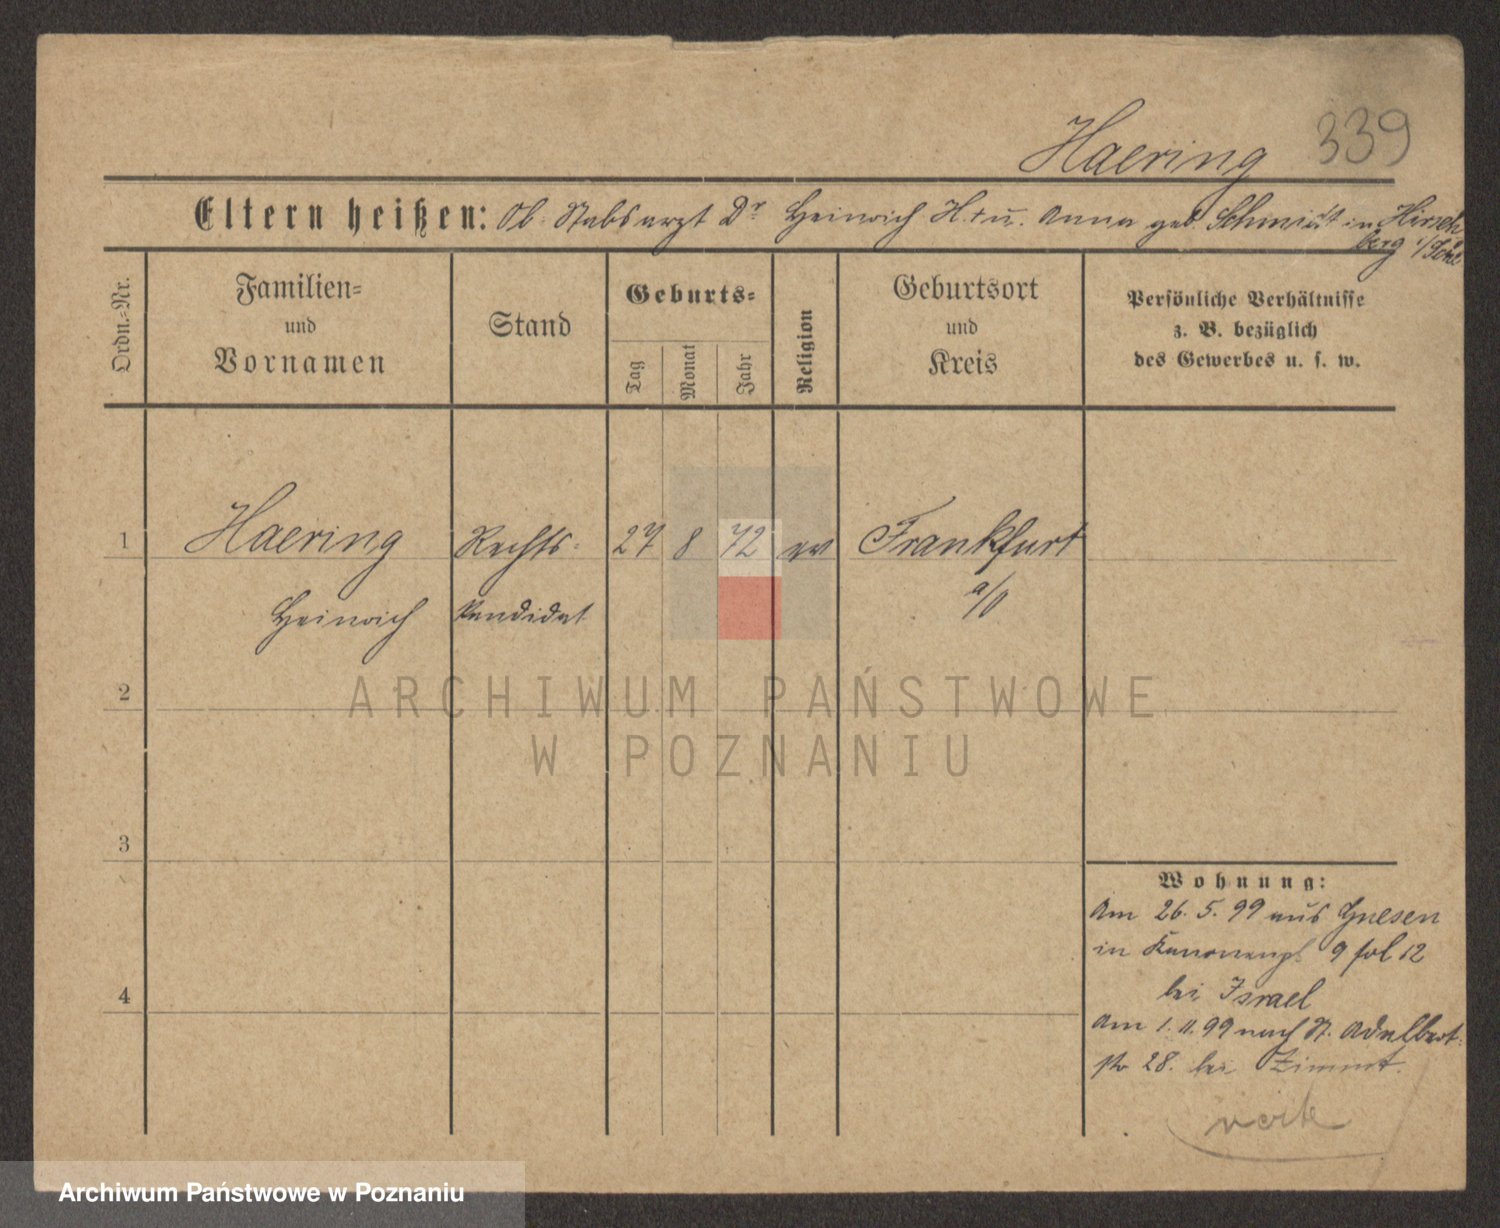 Haering 339
Eltern heißen: Ob. Stabsarzt Dr Heinrich H. u. Anna geb. Schmidt in Hirsch
berg i/Schl
Ordn.-Nr.
Familien-
und
Vornamen
Stand
Geburts-
Tag
Monat
Jahr
Religion
Geburtsort
und
Kreis
Persönliche Verhältnisse
z. B. bezüglich
des Gewerbes u. s. w.
1 Haering Rechts- 27 8 72 ev Frankfurt
Heinrich Kandidat a/O
2
ARCHIWUM PAŃSTWOWE
W POZNANIU
3
4
Wohnung:
Am 26. 5. 99 aus Gnesen
in Kanonenpl. 9 fol 12
bei Israel
Am 1. 11. 99 nach St. Adalbert-
str 28. bei Zimmt.
verte
Archiwum Państwowe w Poznaniu